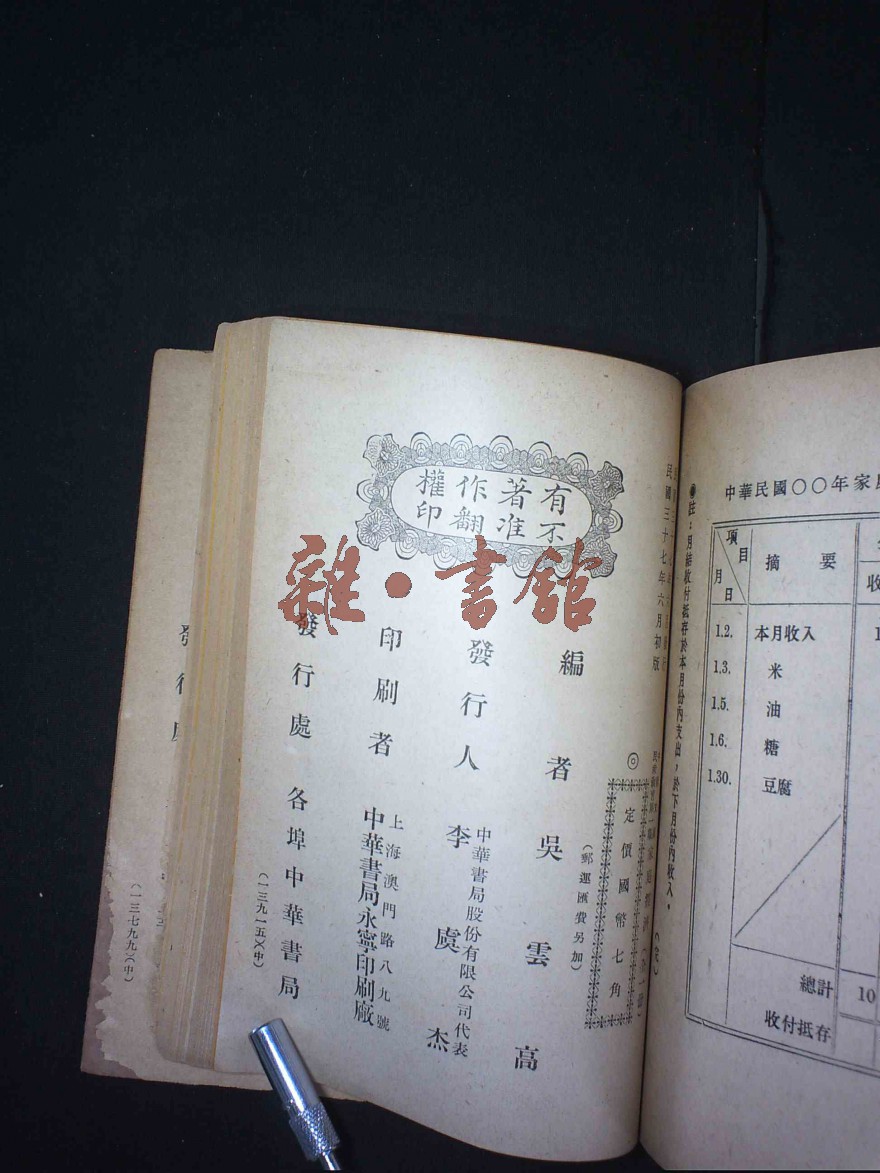 中華民國○○年家
項目
月日
摘要
收
1.2.
本月收入
1
1.3.
米
1.5.
油
1.6.
糖
1.30.
豆腐
總計
10
收付抵存
●註：月結收付抵存於本月份內支出，於下月份內收入。
民國三十七年六月初版
◎
家庭
定價國幣七角
（郵運匯費另加）
有不
著准
作翻
權印
編者吳雲高
發行人李虞杰
中華書局股份有限公司代表
印刷者
上海澳門路八九號
中華書局永寧印刷廠
發行處各埠中華書局
（一三九一五）（中）
發行處
（一三七九九）（中）
雜·書館